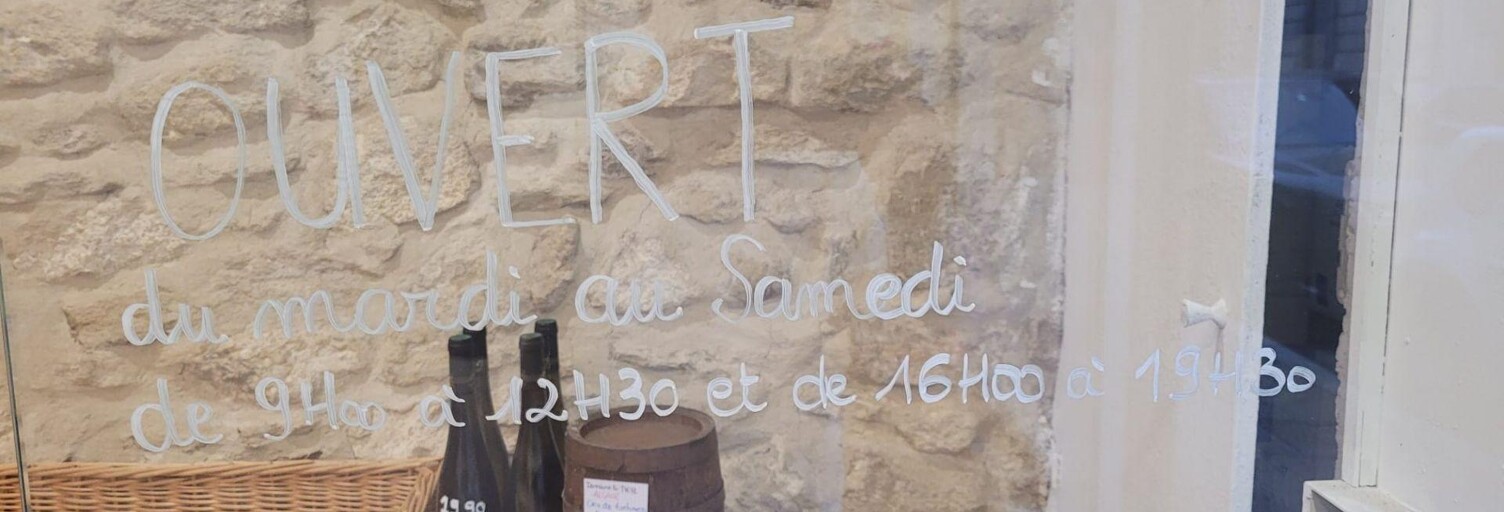 OUVERT
du mardi au Samedi
de 9H00 à 12H30 et de 16H00 à 19H30
19.90
ALSACE